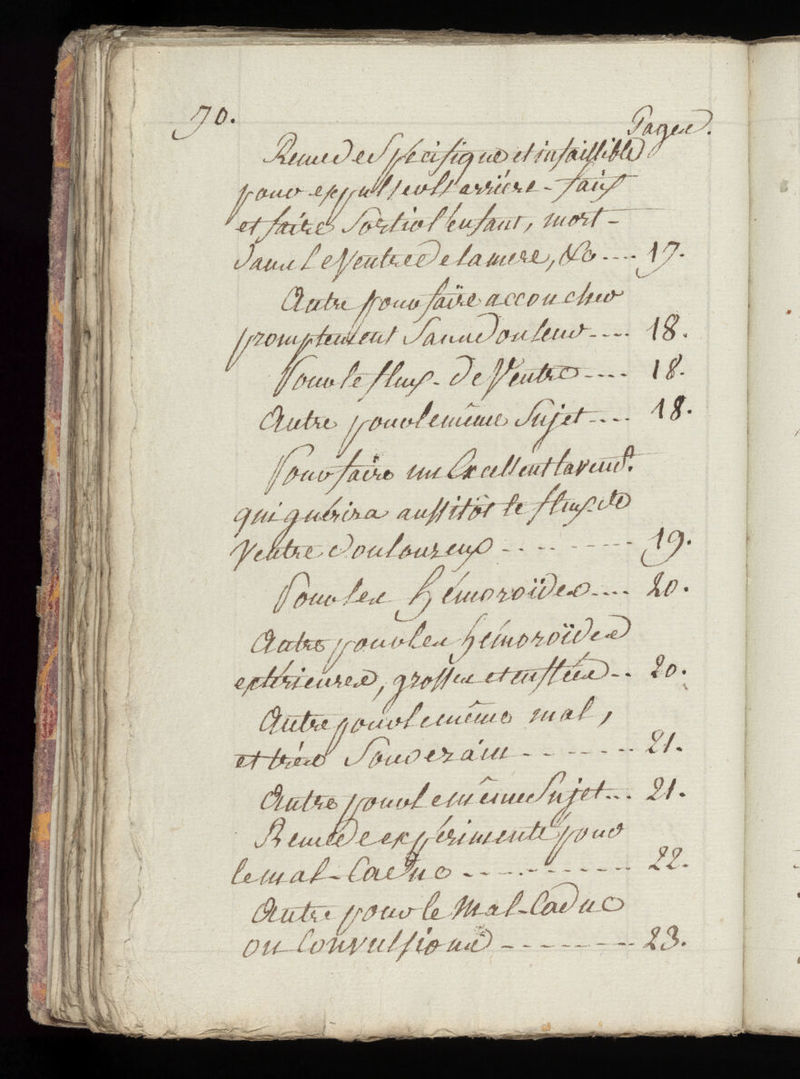 70.
Pages.
Remede Spécifique et infaillible
pour expulser l'arriére-faix
et faire Sortir l'enfant, mort-
dans le Ventre de la mere, &c .... 17.
Autre pour faire accoucher
promptement Sans Douleur .... 18.
Pour le flux-de Ventre .... 18.
Autre pour le même Sujet .... 18.
Pour faire un Excellent lavemt.
qui guérira aussitôt le flux de
Ventre Douloureux ........ 19.
Pour les Hémoroïdes .... 20.
Autre pour les hémoroïdes
extérieures, grosses et enflées .. 20.
Autre pour le même mal,
et très Souverain ....... 21.
Autre pour le même Sujet ... 21.
Remede expérimenté pour
le mal-Caduc .......... 22.
Autre pour le Mal-Caduc
ou Convulsions ....... 23.